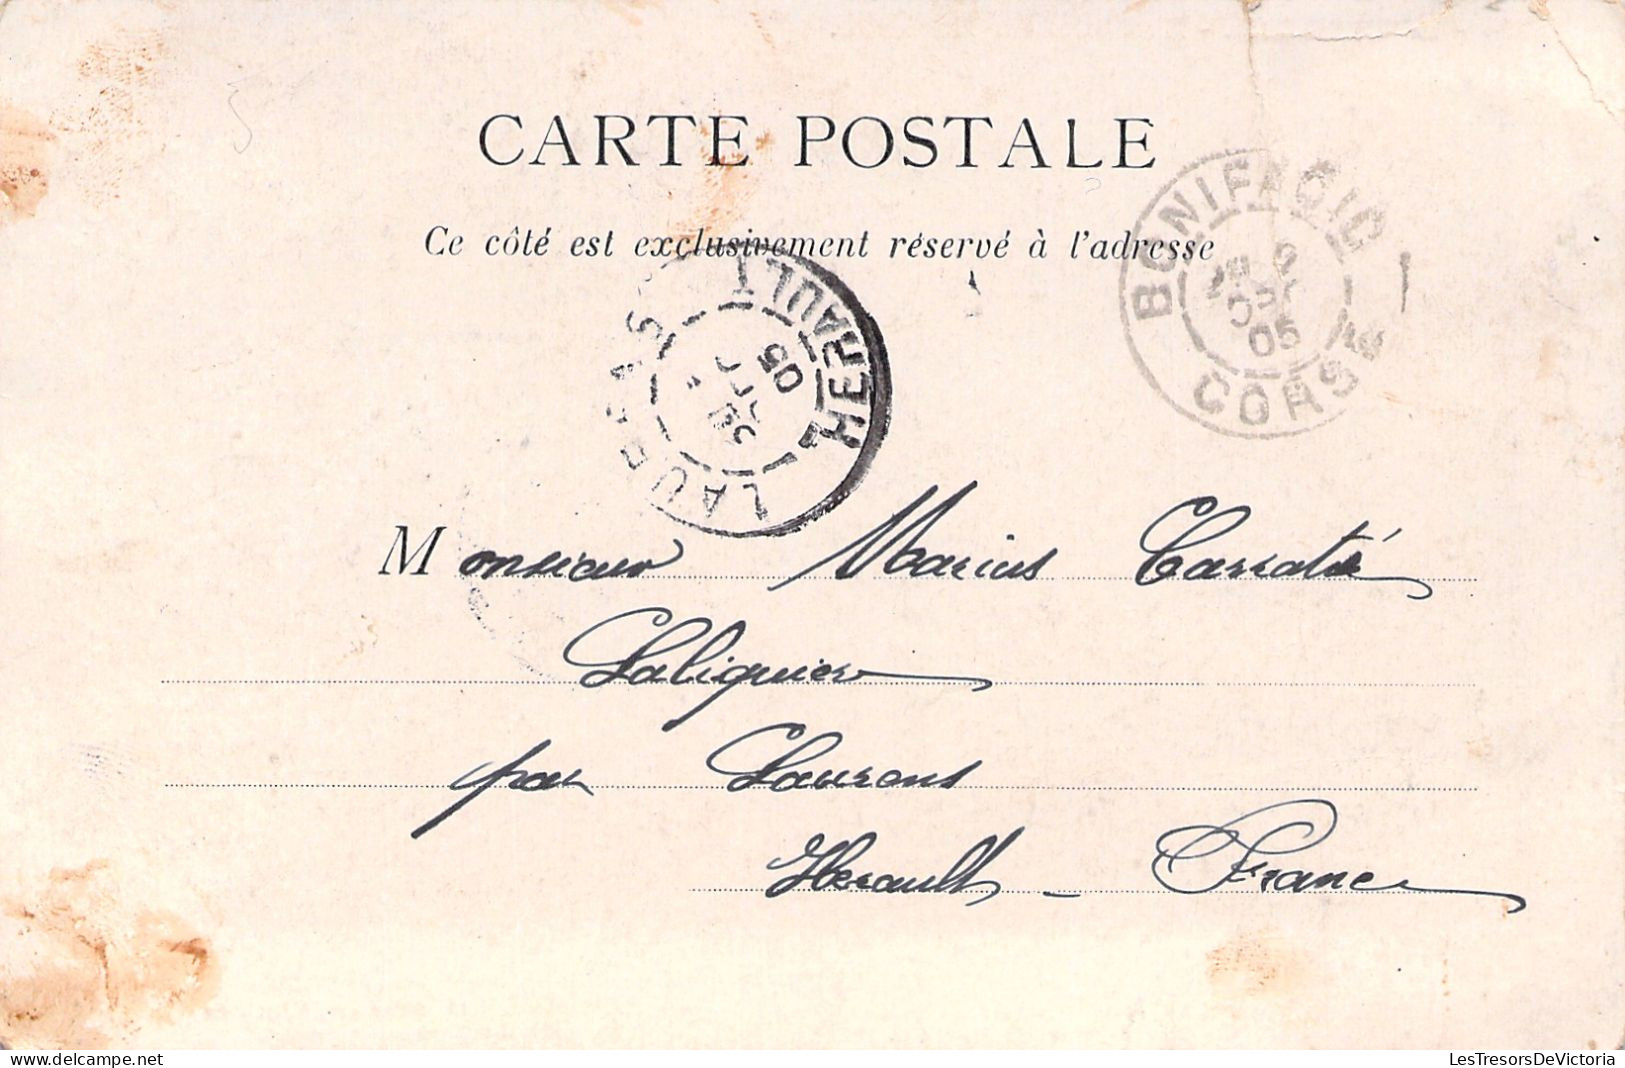 CARTE POSTALE
Ce côté est exclusivement réservé à l'adresse
BONIFACIO
05
CORSE
LAURENS
HERAULT
05
Monsieur Marius Carratié
Laliquier
par Laurens
Herault - France
LesTresorsDeVictoria